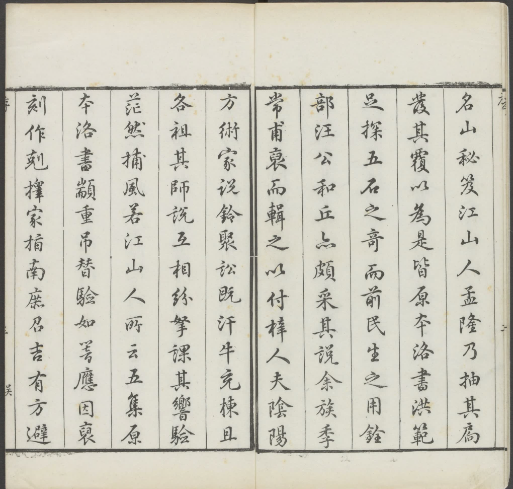 名山秘笈江山人孟隆乃抽其扃
發其覆以為是皆原本洛書洪範
足探五石之奇而前民生之用銓
部汪公和丘亦頗采其說余族季
常甫裒而輯之以付梓人夫陰陽
方術家說鈴聚訟既汗牛充棟且
各祖其師說互相紛拏課其響驗
茫然捕風若江山人所云五集原
本洛書顓重吊替驗如荅應因裒
刻作剋擇家指南庶召吉有方避